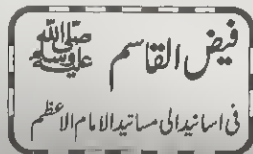 فیض القاسم ﷺ
فی اسانیدالی مسانیدالامام الاعظم